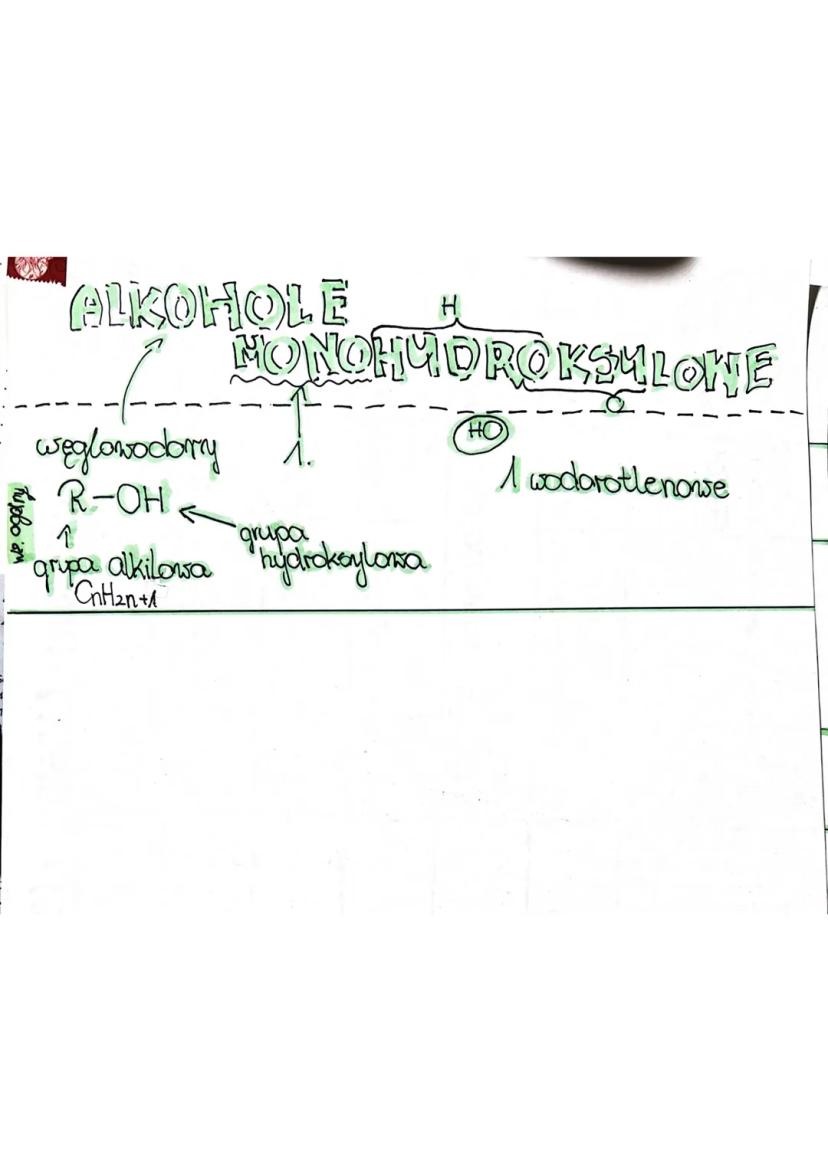 ALKOHOLE
H
MONOHYDROKSYLOWE
O
HO
węglowodory
1.
1 wodorotlenowe
wz. ogólny
R-OH
grupa hydroksylowa
grupa alkilowa
CnH2n+1